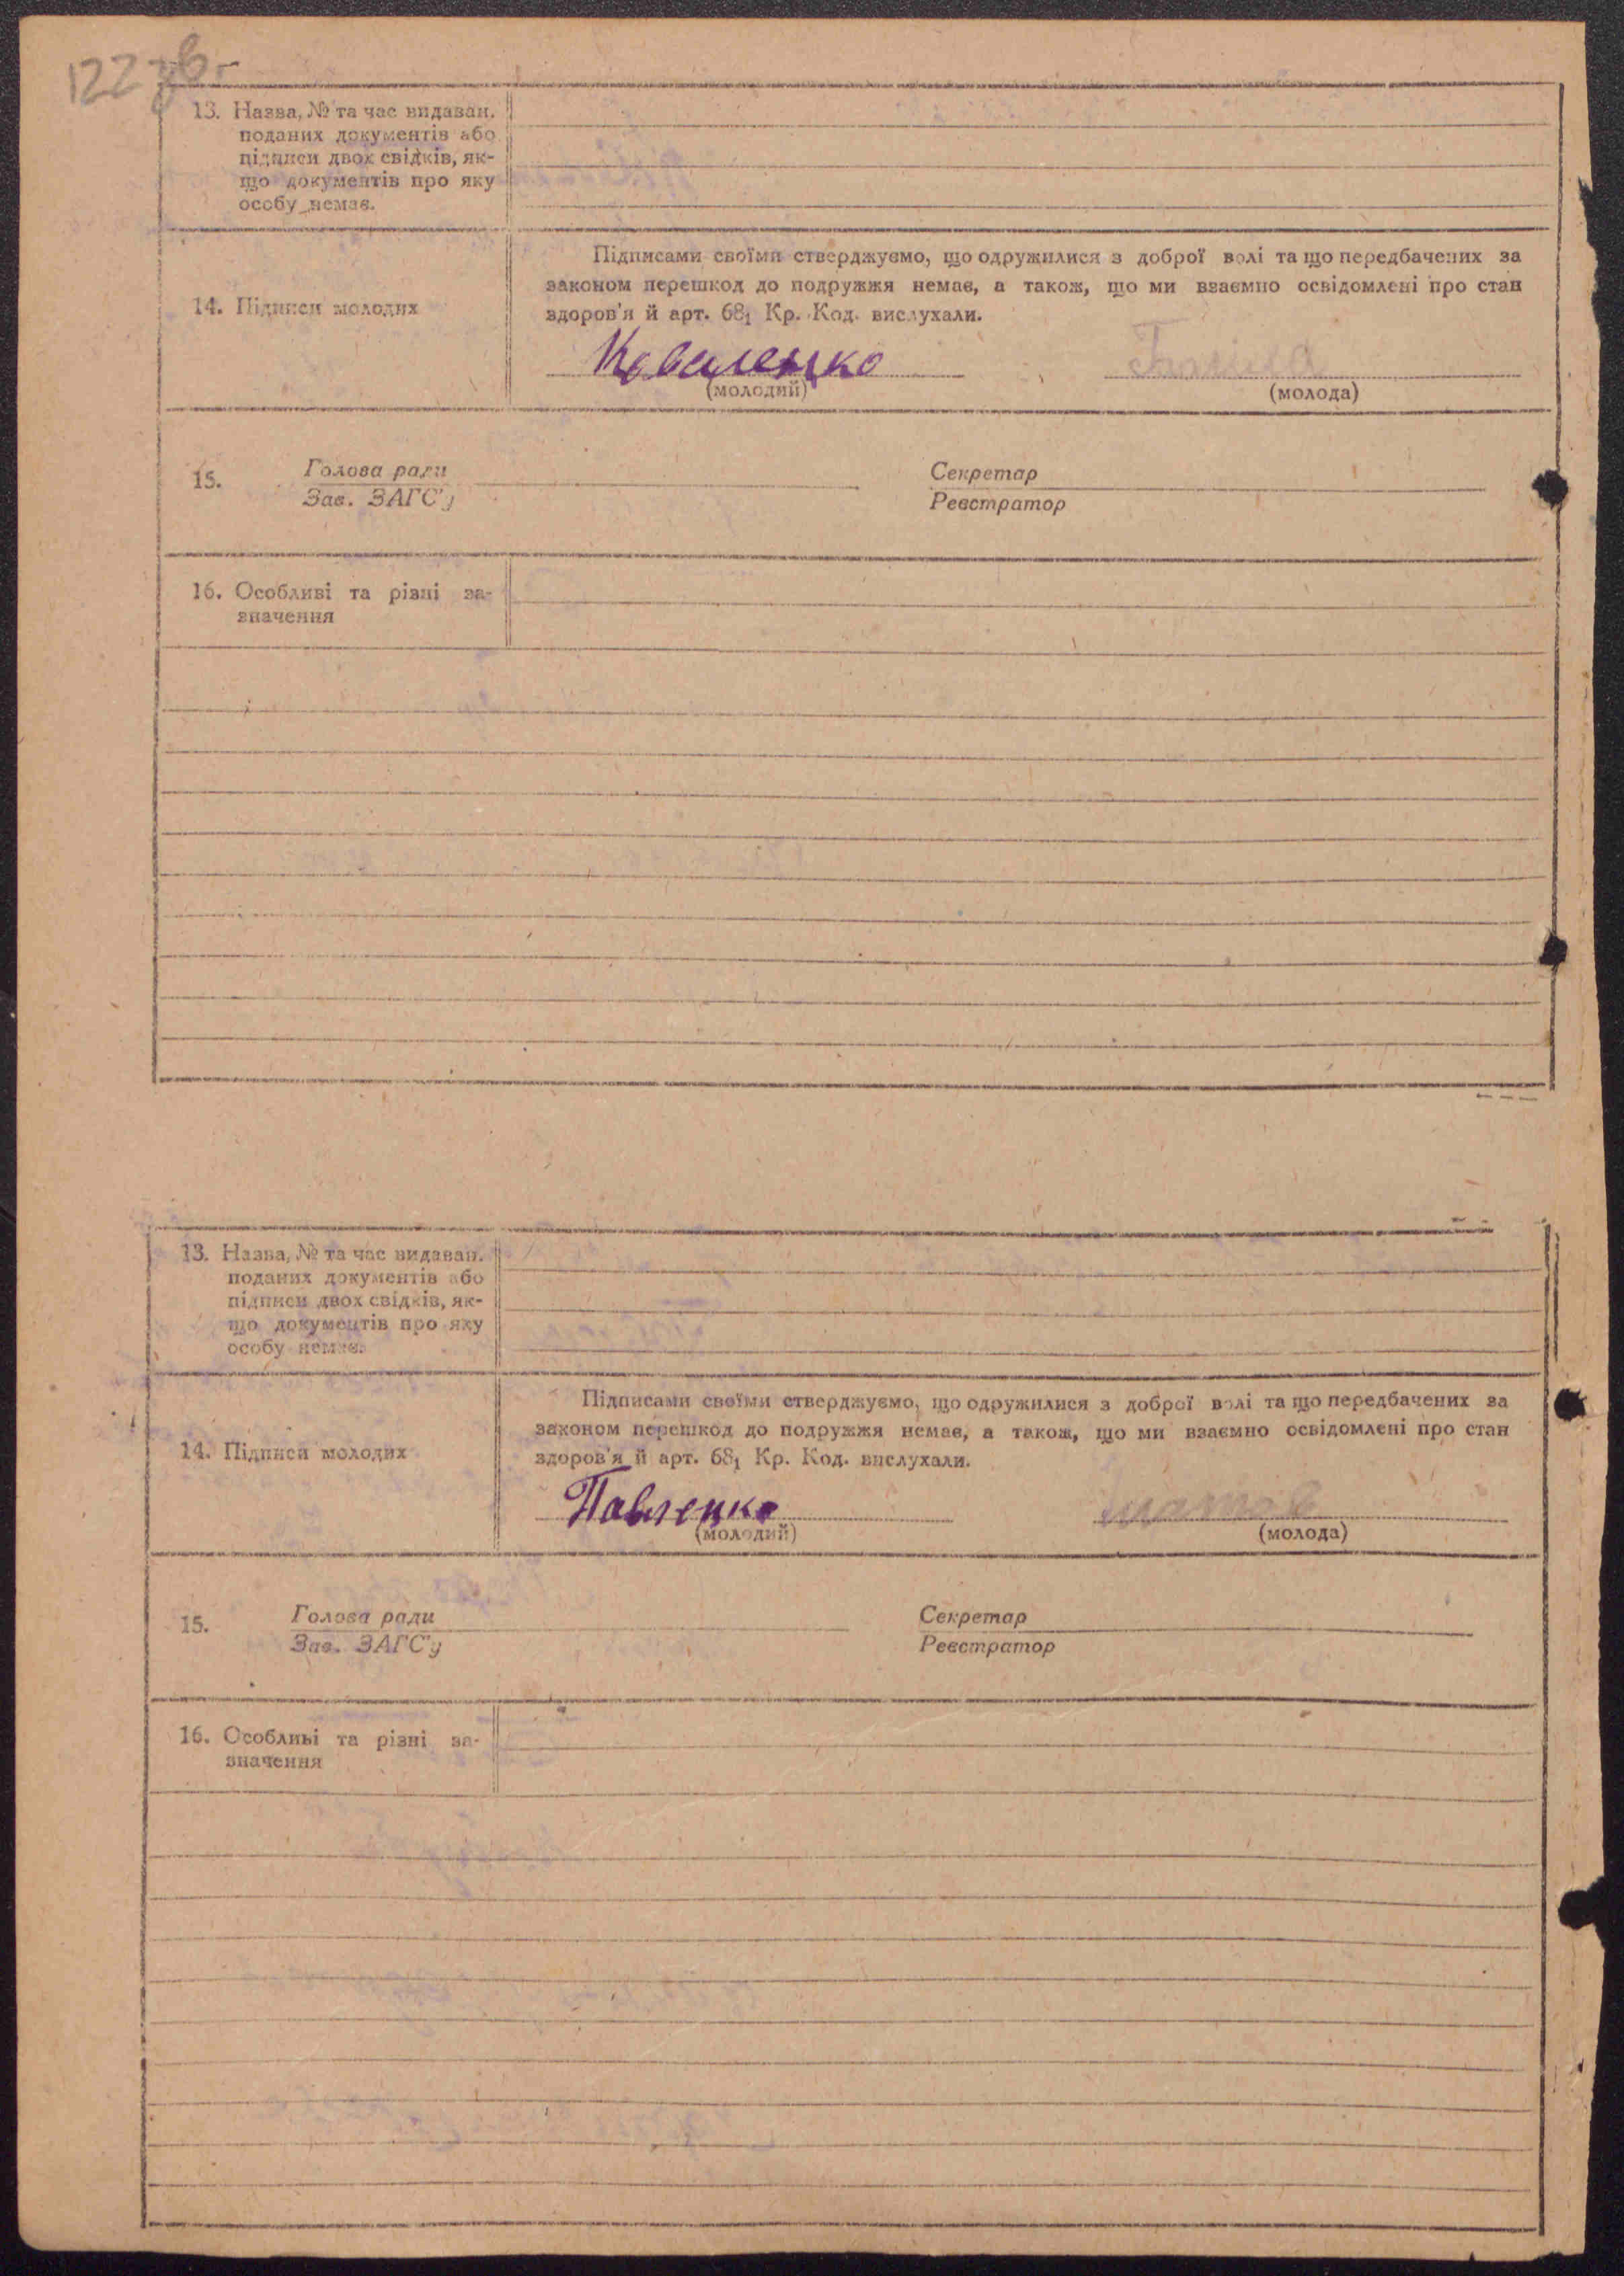 122 зв.
13. Назва, № та час видаван.
поданих документів або
підписи двох свідків, як-
що документів про яку
особу немає.
Підписами своїми стверджуємо, що одружилися з доброї волі та що передбачених за
законом перешкод до подружжя немає, а також, що ми взаємно освідомлені про стан
здоров'я й арт. 68₁ Кр. Код. вислухали.
14. Підписи молодих
Коваленко
(молодий) (молода)
15. Голова ради Секретар
Зав. ЗАГС'у Реєстратор
16. Особливі та різні за-
значення
13. Назва, № та час видаван.
поданих документів або
підписи двох свідків, як-
що документів про яку
особу немає.
Підписами своїми стверджуємо, що одружилися з доброї волі та що передбачених за
законом перешкод до подружжя немає, а також, що ми взаємно освідомлені про стан
здоров'я й арт. 68₁ Кр. Код. вислухали.
14. Підписи молодих
Павленко
(молодий) (молода)
15. Голова ради Секретар
Зав. ЗАГС'у Реєстратор
16. Особливі та різні за-
значення